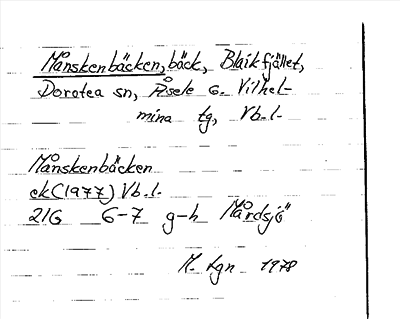 Månskenbäcken, bäck, Blaikfjället,
Dorotea sn, Åsele o. Vilhel-
mina tg, Vb.l.
Månskenbäcken
ek(1977) Vb.l.
21G 6-7 g-h Mårdsjö
M. Lgn 1978